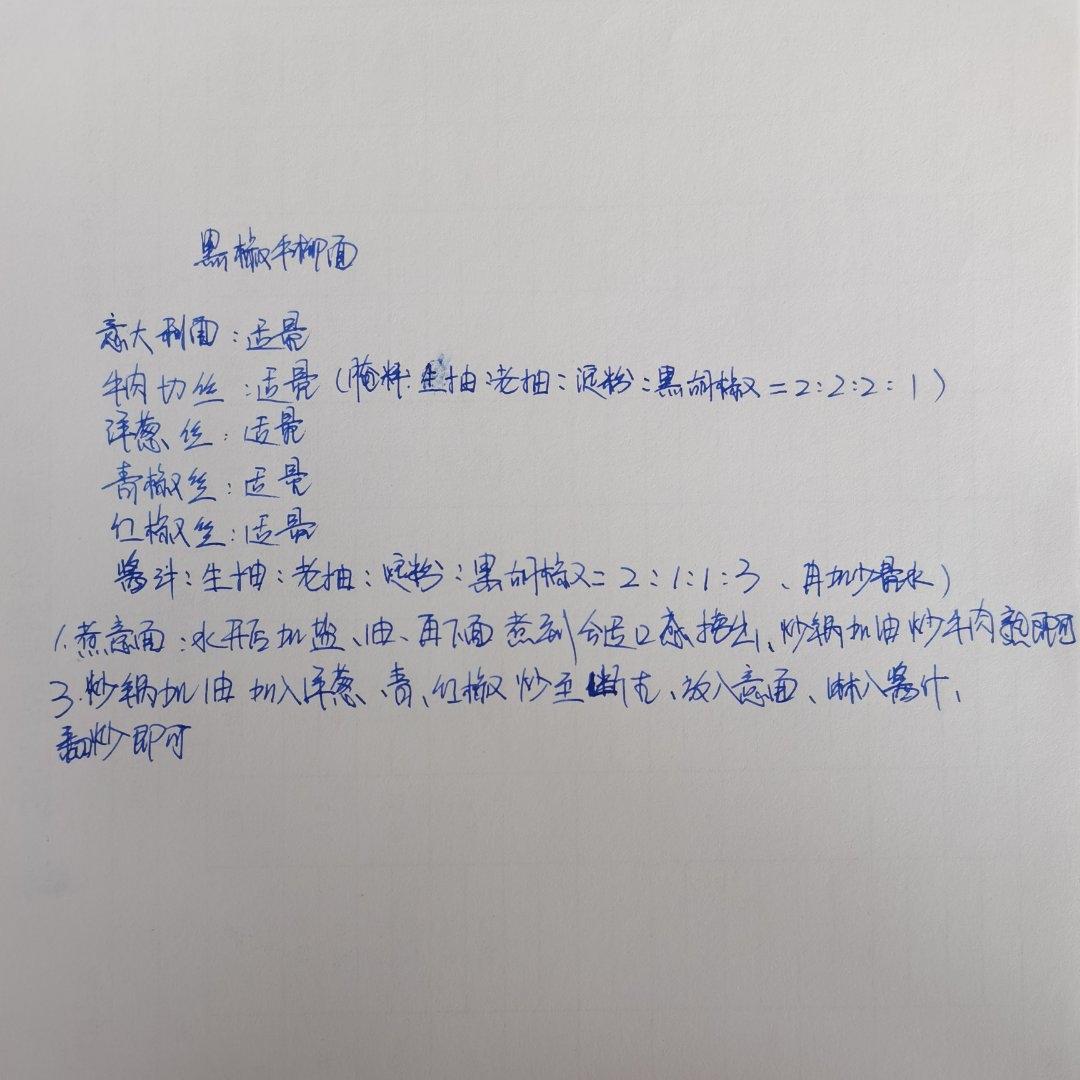 黑椒牛柳面
意大利面:适量
牛肉切丝:适量(腌料:生抽:老抽:淀粉:黑胡椒=2:2:2:1)
洋葱丝:适量
青椒丝:适量
红椒丝:适量
酱汁:生抽:老抽:淀粉:黑胡椒=2:1:1:3、再加少量水)
1.煮意面:水开后加盐、油、再下面煮到合适口感捞出、炒锅加油炒牛肉熟即可
3.炒锅加油加入洋葱、青、红椒炒至断生,放入意面、淋入酱汁,
翻炒即可